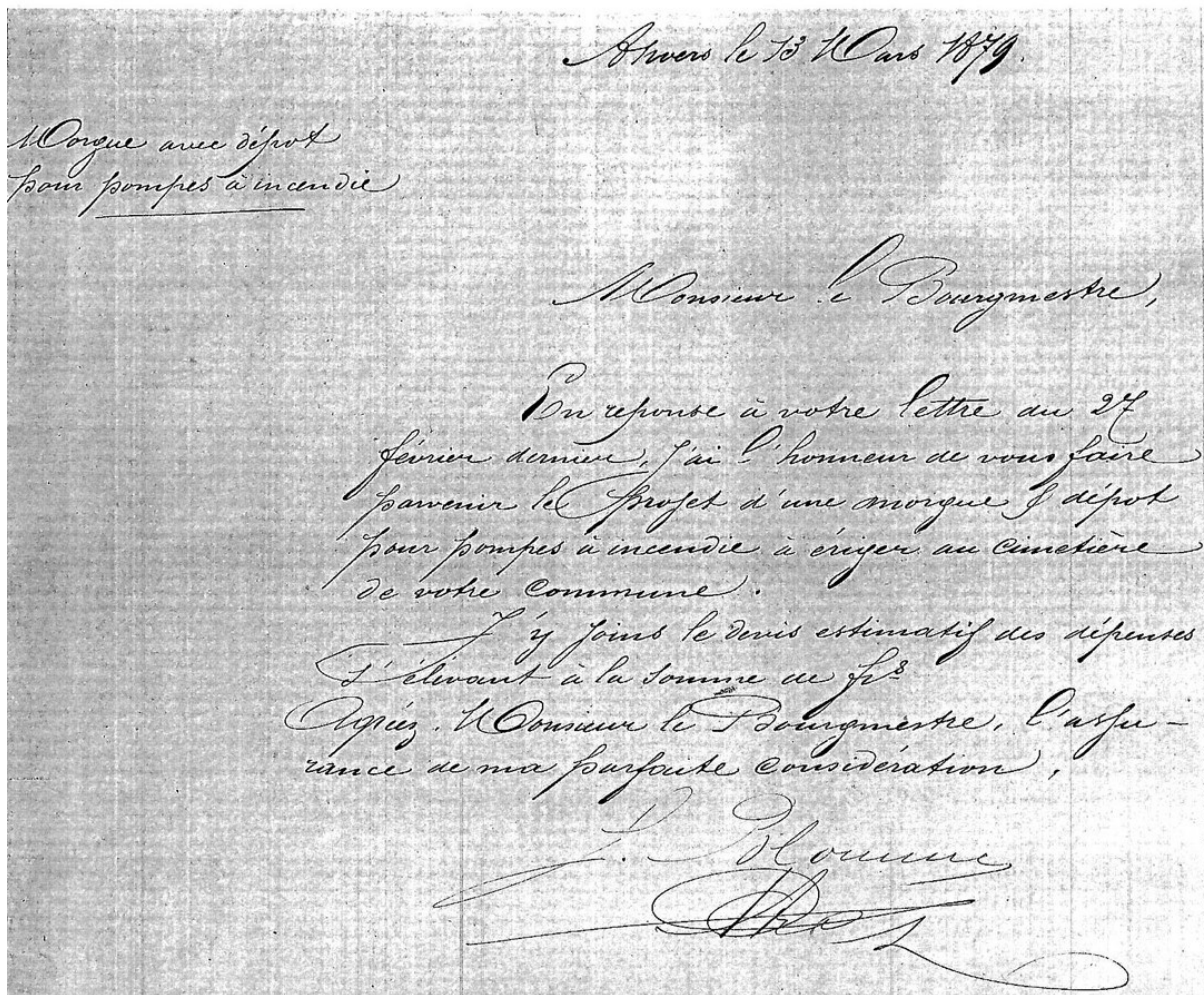 Anvers le 13 Mars 1879.
Morgue avec dépot
pour pompes à incendie
Monsieur le Bourgmestre,
En reponse à votre lettre du 27
février dernier, j'ai l'honneur de vous faire
parvenir le projet d'une morgue & dépot
pour pompes à incendie à ériger au cimetière
de votre commune.
J'y joins le devis estimatif des dépenses
s'élevant à la somme de frs
Agréez, Monsieur le Bourgmestre, l'assu-
rance de ma parfaite considération,